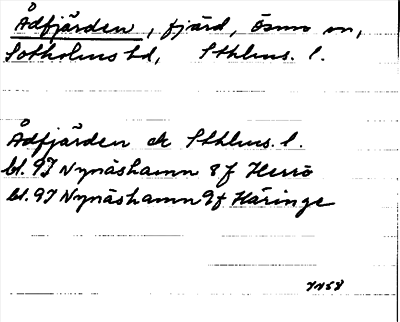 Ådfjärden, fjärd, Ösmo sn,
Sotholms hd, Sthlms. l.
Ådfjärden ek Sthlms. l.
bl. 9I Nynäshamn 8f Herrö
bl. 9I Nynäshamn 9f Häringe